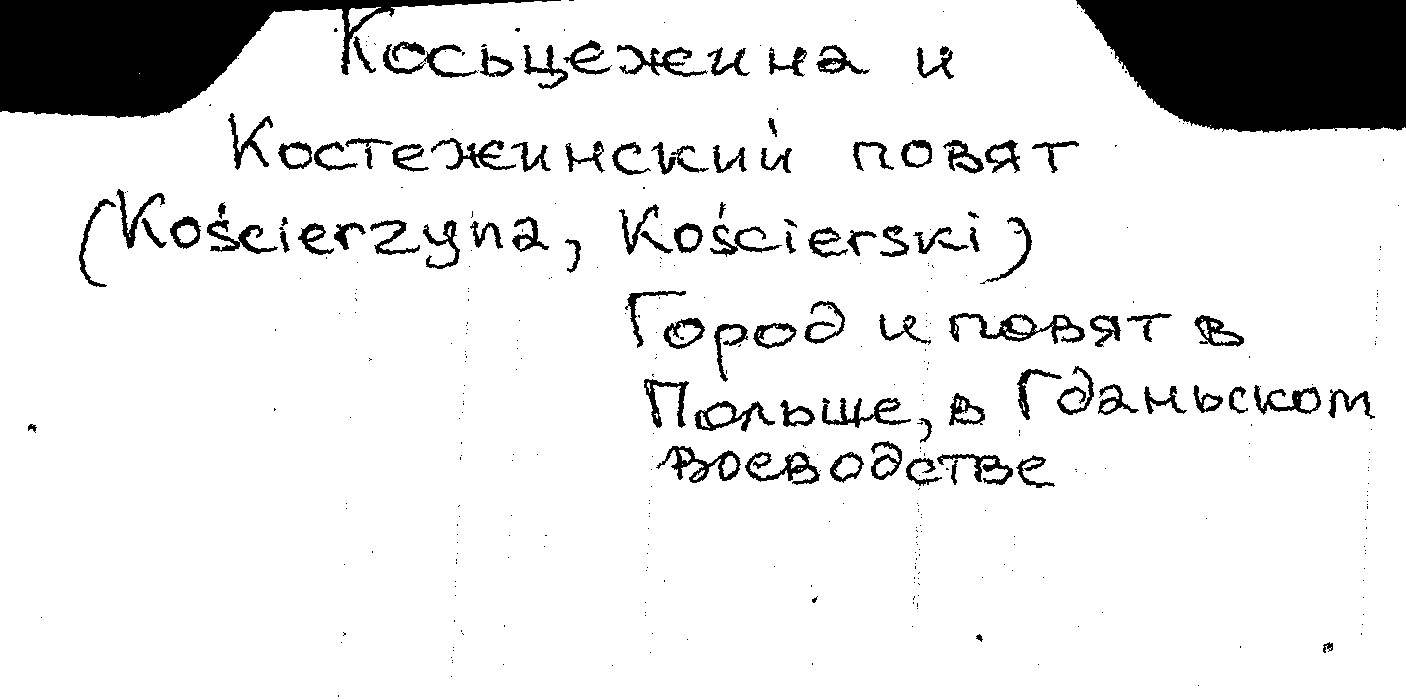 Косьцежина и
Костежинский повят
(Kościerzyna, Kościerski)
Город и повят в
Польше, в Гданьском
воеводстве